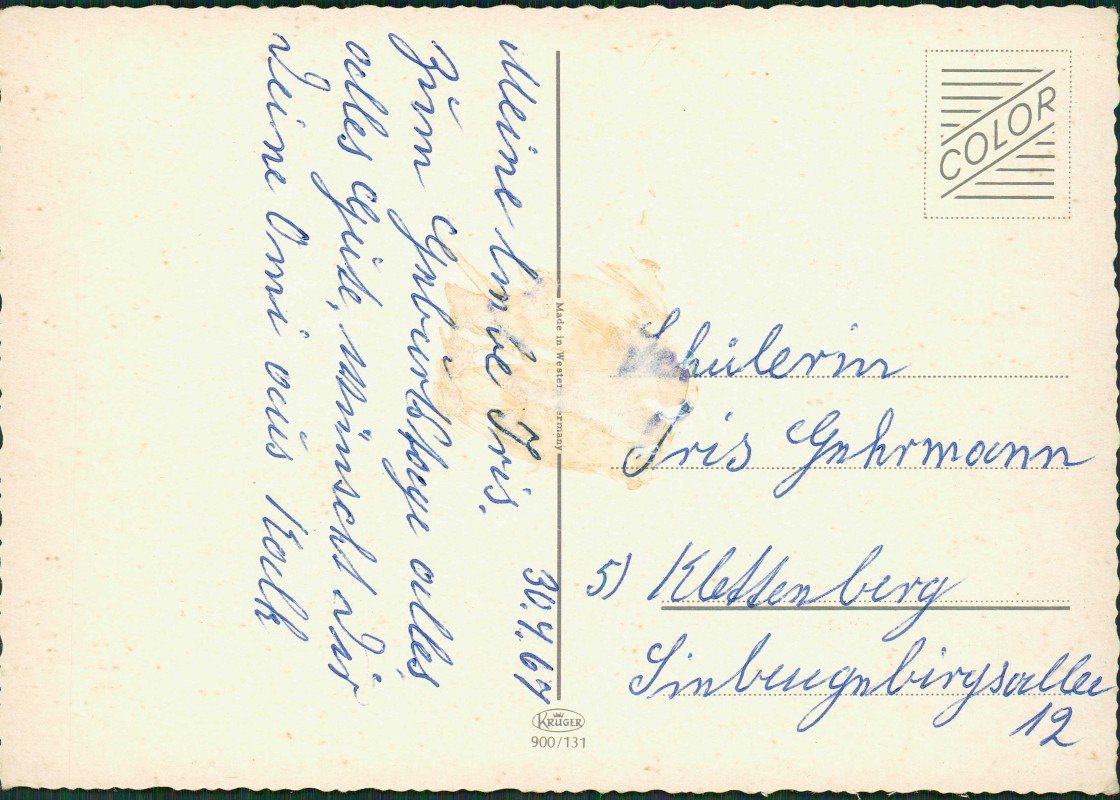 30.4.67
Meine liebe Iris.
Zum Geburtstage alles
alles Gute, wünscht Dir
Deine Omi aus Kalk
COLOR
Made in Western Germany
Schülerin
Iris Gehrmann
5) Klettenberg
Siebengebirgsallee
12
KRÜGER
900/131